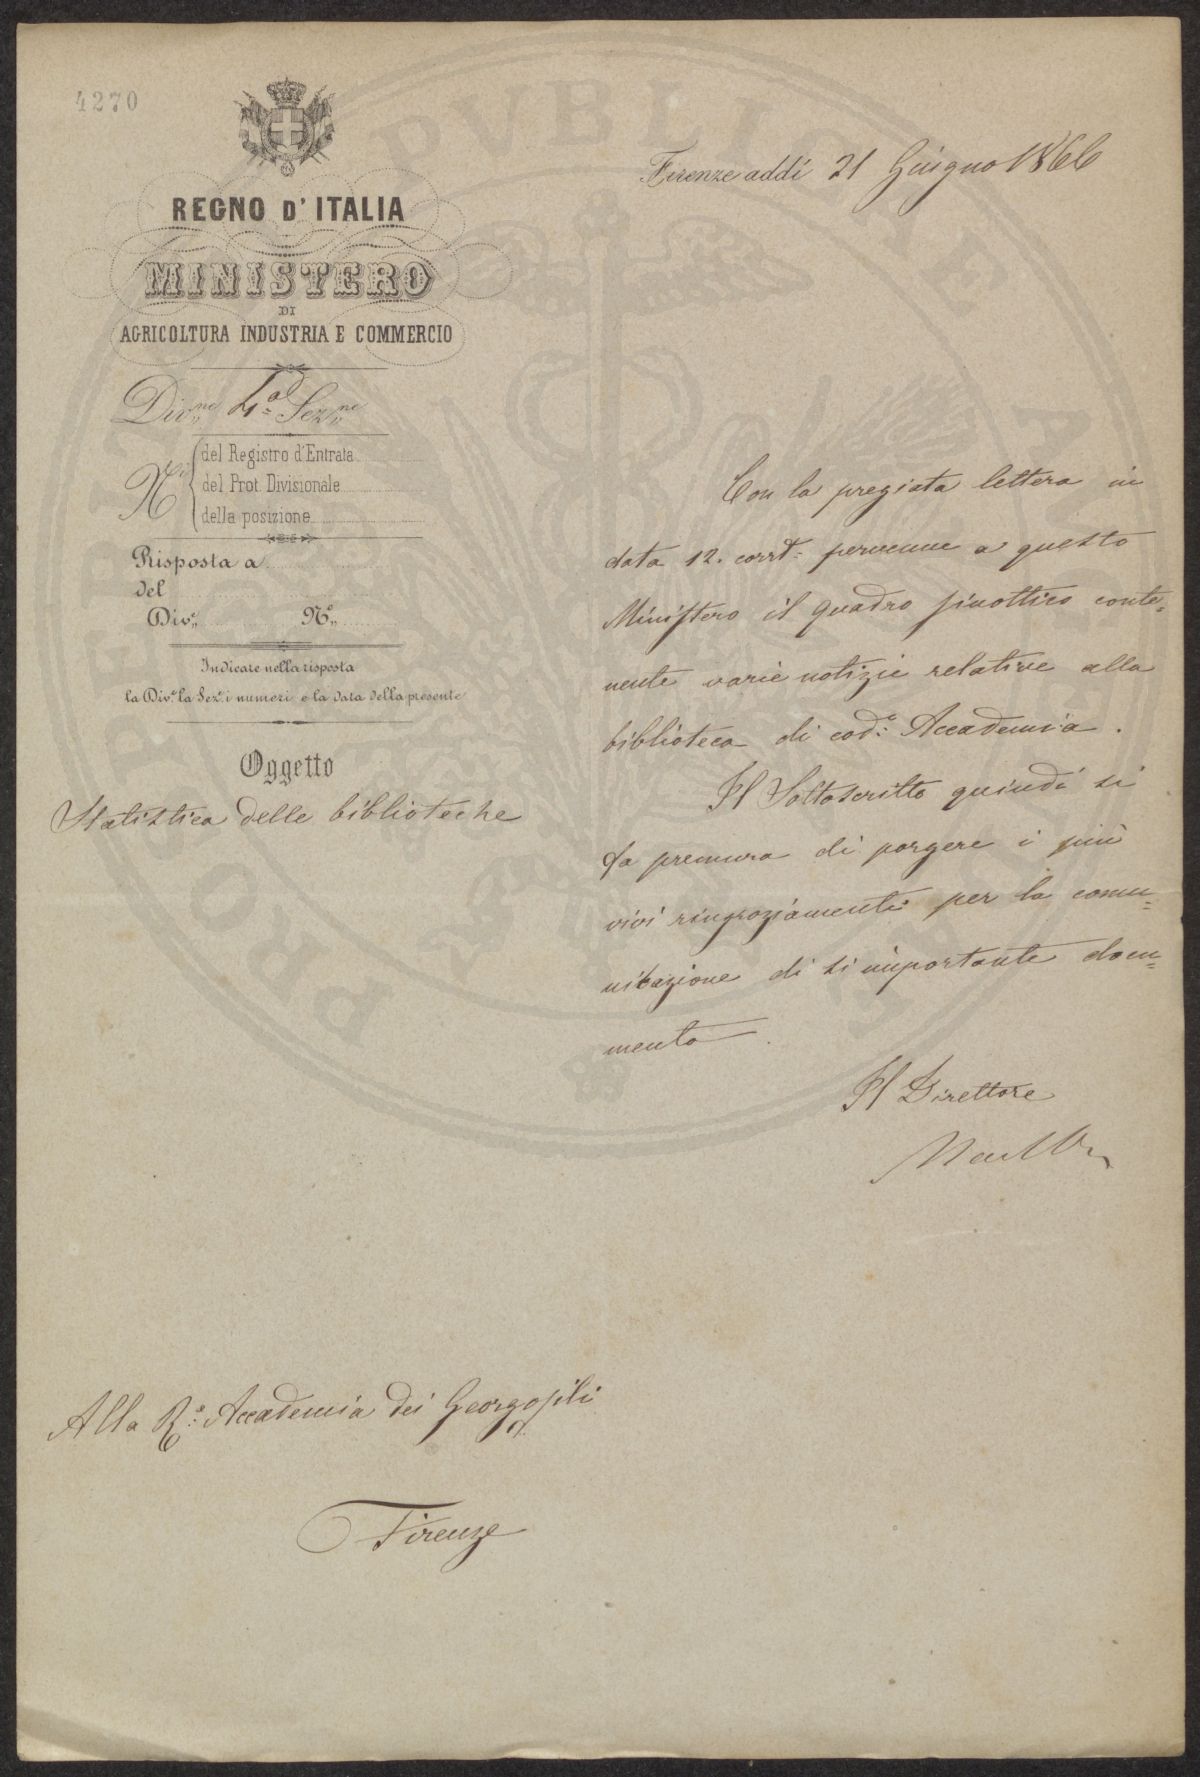 4270
REGNO D'ITALIA
MINISTERO
DI
AGRICOLTURA INDUSTRIA E COMMERCIO
Div.ne 4.a Sez.ne
N.i del Registro d'Entrata
del Prot. Divisionale
della posizione
Risposta a
del
Div.e N.o
Indicare nella risposta
la Div.e la Sez.e i numeri e la data della presente
Oggetto
Statistica delle biblioteche
Firenze addì 21 Giugno 1866
Con la pregiata lettera in
data 12. corrt: pervenne a questo
Ministero il quadro sinottico conte=
nente varie notizie relative alla
biblioteca di cod.a Accademia.
Il Sottoscritto quindi si
fa premura di porgere i più
vivi ringraziamenti per la comu=
nicazione di sì importante docu=
mento.
Il Direttore
Alla R.e Accademia dei Georgofili
Firenze
PVBL